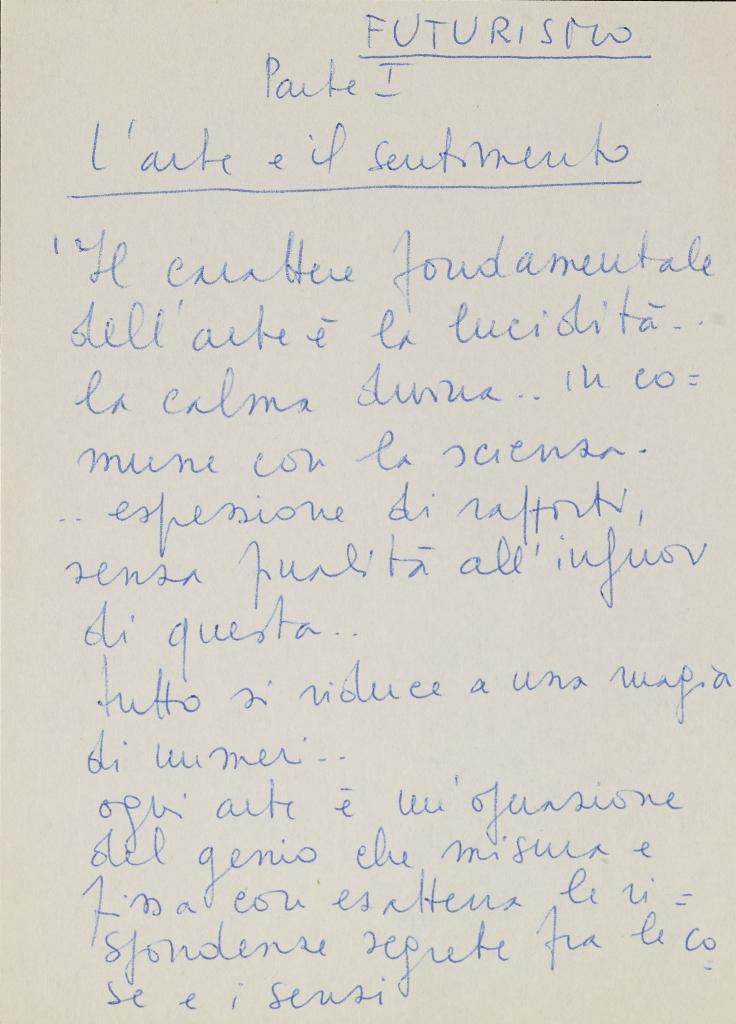 FUTURISMO
Parte I
L'arte e il sentimento
"Il carattere fondamentale
dell'arte è la lucidità..
la calma diurna.. in co=
mune con la scienza.
.. espressione di rapporti,
senza finalità all'infuori
di questa..
tutto si riduce a una magia
di numeri..
ogni arte è un'operazione
del genio che misura e
fissa con esattezza le ri=
spondenze segrete fra le co=
se e i sensi